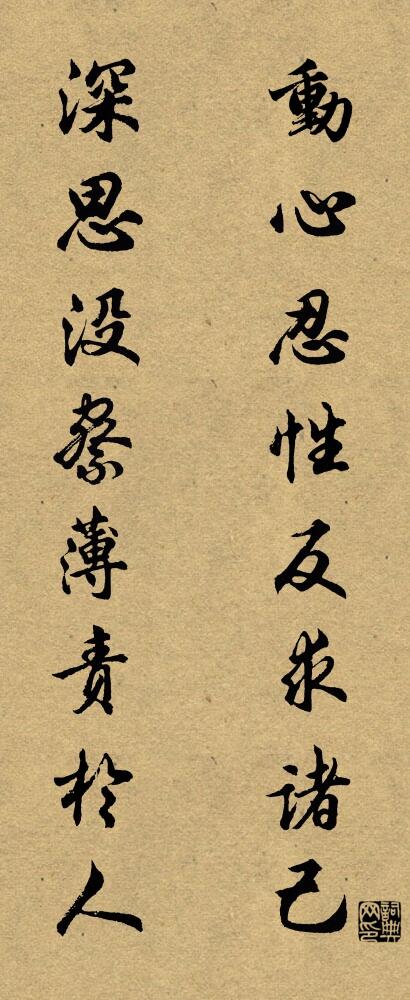 動心忍性反求諸己
深思没察薄責於人
詞典
网印